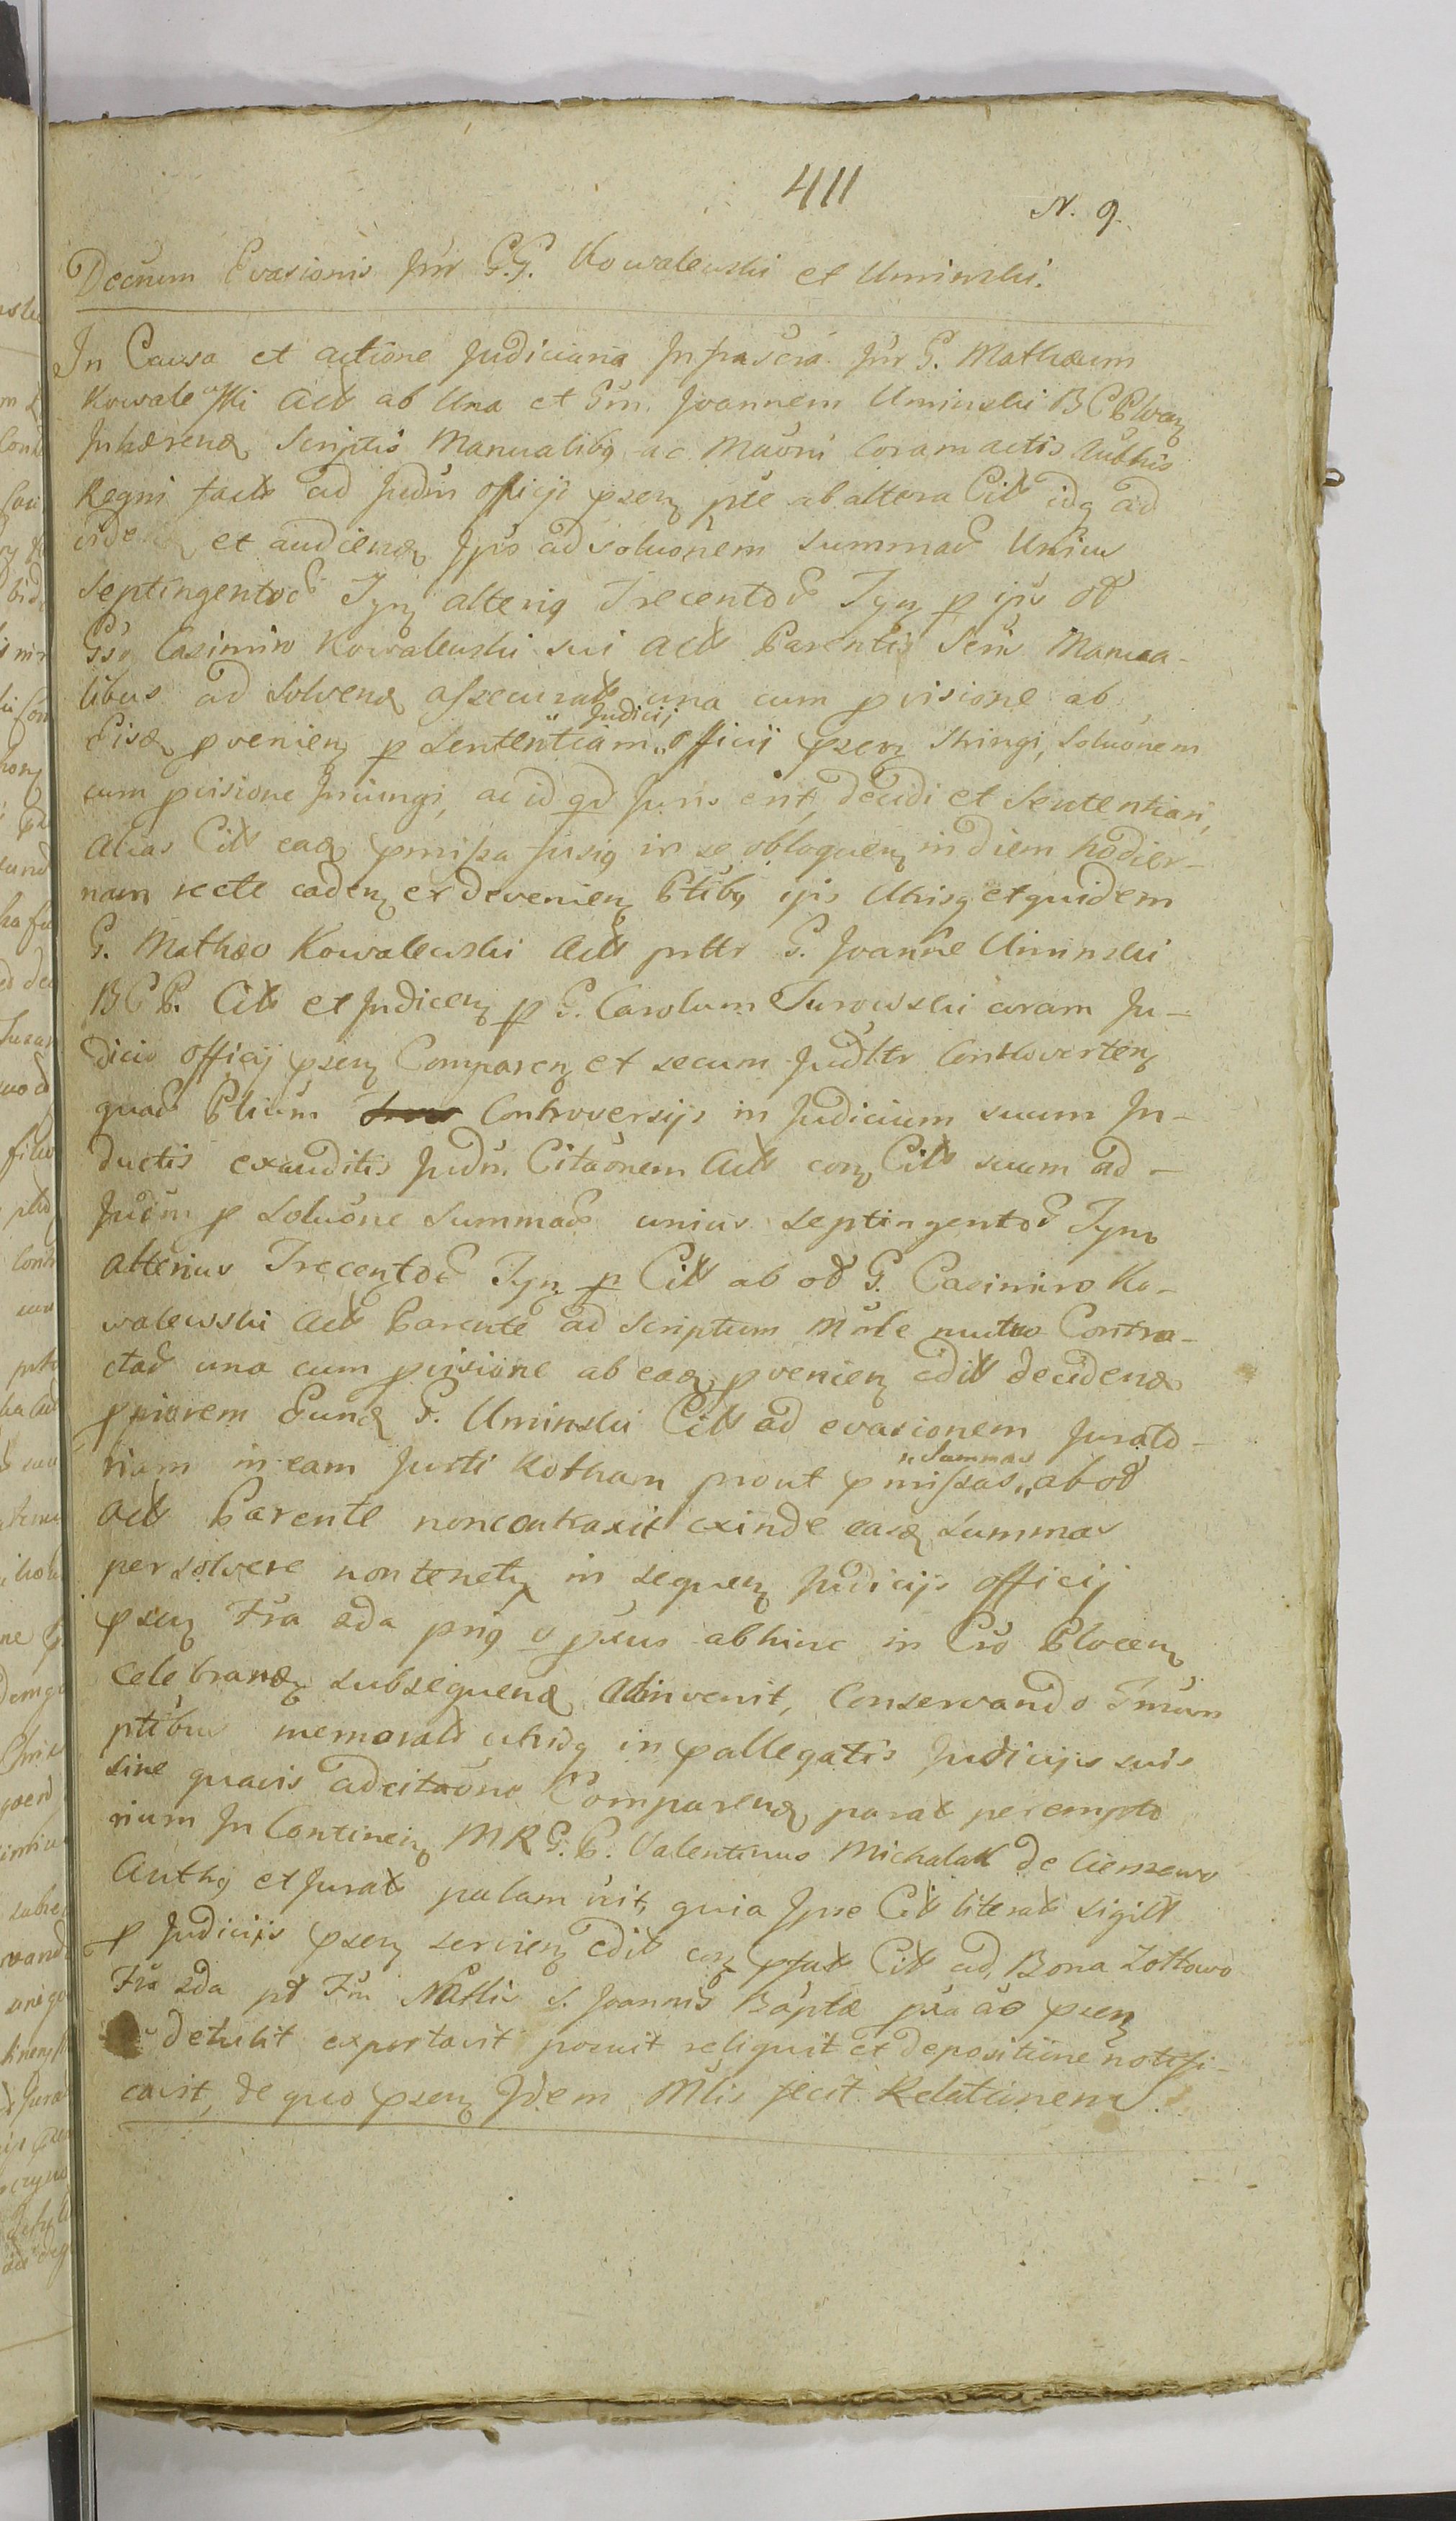 411
N. 9.
Decrum Evasionis Inr G.G. Kowalewski et Uminski.
In Causa et actione Judiciaria Infrascra Inr G. Mathæum
Kowalewski Act ab Una et Gm. Joannem Uminski BCP
Inhærend Scriptis Manualibq ac coram actis
Regni fact ad Judm officij psen pte ab altera Cit idq ad
et audiend Ipis ad soluonem summar Unius
Septingentor Tyn alteriq Trecentor Tyn p ipis od
Gso Casimiro Kowalewski sui Act Parentis Seris Manua-
libus ad solvend assecurat una cum pvisione ab
Eisd pvenien p Sententiam „Judicij officij psen Stringi, soluonem
cum pvisione Iniungi, ac id qd Juris erit, decidi et Sententiari,
Alias Cit ead pmissa fusiq in se obloquen in diem hodier-
nam recte caden et devenien Ptibq ipis Utrisq et quidem
G. Mathæo Kowalewski Act prttr G. Joanne Uminski
BCP. Cit et Judicen p G. Carolum Turowski coram Ju-
dicio officij psen Comparen et secum Judttr Controverten
quar Ptium Controversijs in Judicium suum In-
ductis exauditis Judm. Citaonem Act con Cit suum ad-
Judm p Soluone Summar unius Septingentor Tyn
alterius Trecentor Tyn p Cit ab od G. Casimiro Ko-
walewski Act Parente ad Scriptum Mnle mutuo Contra-
ctar una cum pvisione ab ead pvenien edit decidend
ppiorem Eund G. Uminski Cit ad evasionem Jurato-
riam in eam Jurti Rotham prout pmissas „Summas ab od
Act Parente non contraxit exinde easd Summas
persolvere non tenetq in sequen Judicijs officij
psen Fra 2da priq v pxus abhinc in Cro Plocen
celebrand subsequend Adinvenit, Conservando Tmum
ptibus memorat utrisq in pallegatis Judicijs suis
sine quavis adcitaone Comparend parat perempto
rium In Continen MRG. P. Valentinus Michalak de
Authq et Jurat palam rit, quia Ipse Cit literat sigilt
p Judicijs psen servien edit con pfat Cit ad Bona Zottowo
Fra 2da pt Fm Nattis S. Joannis Baptæ pxa ao psen
detulit exportavit posuit reliquit et depositione notifi-
cavit, de quo psen Idem Mlis fecit Relationem.